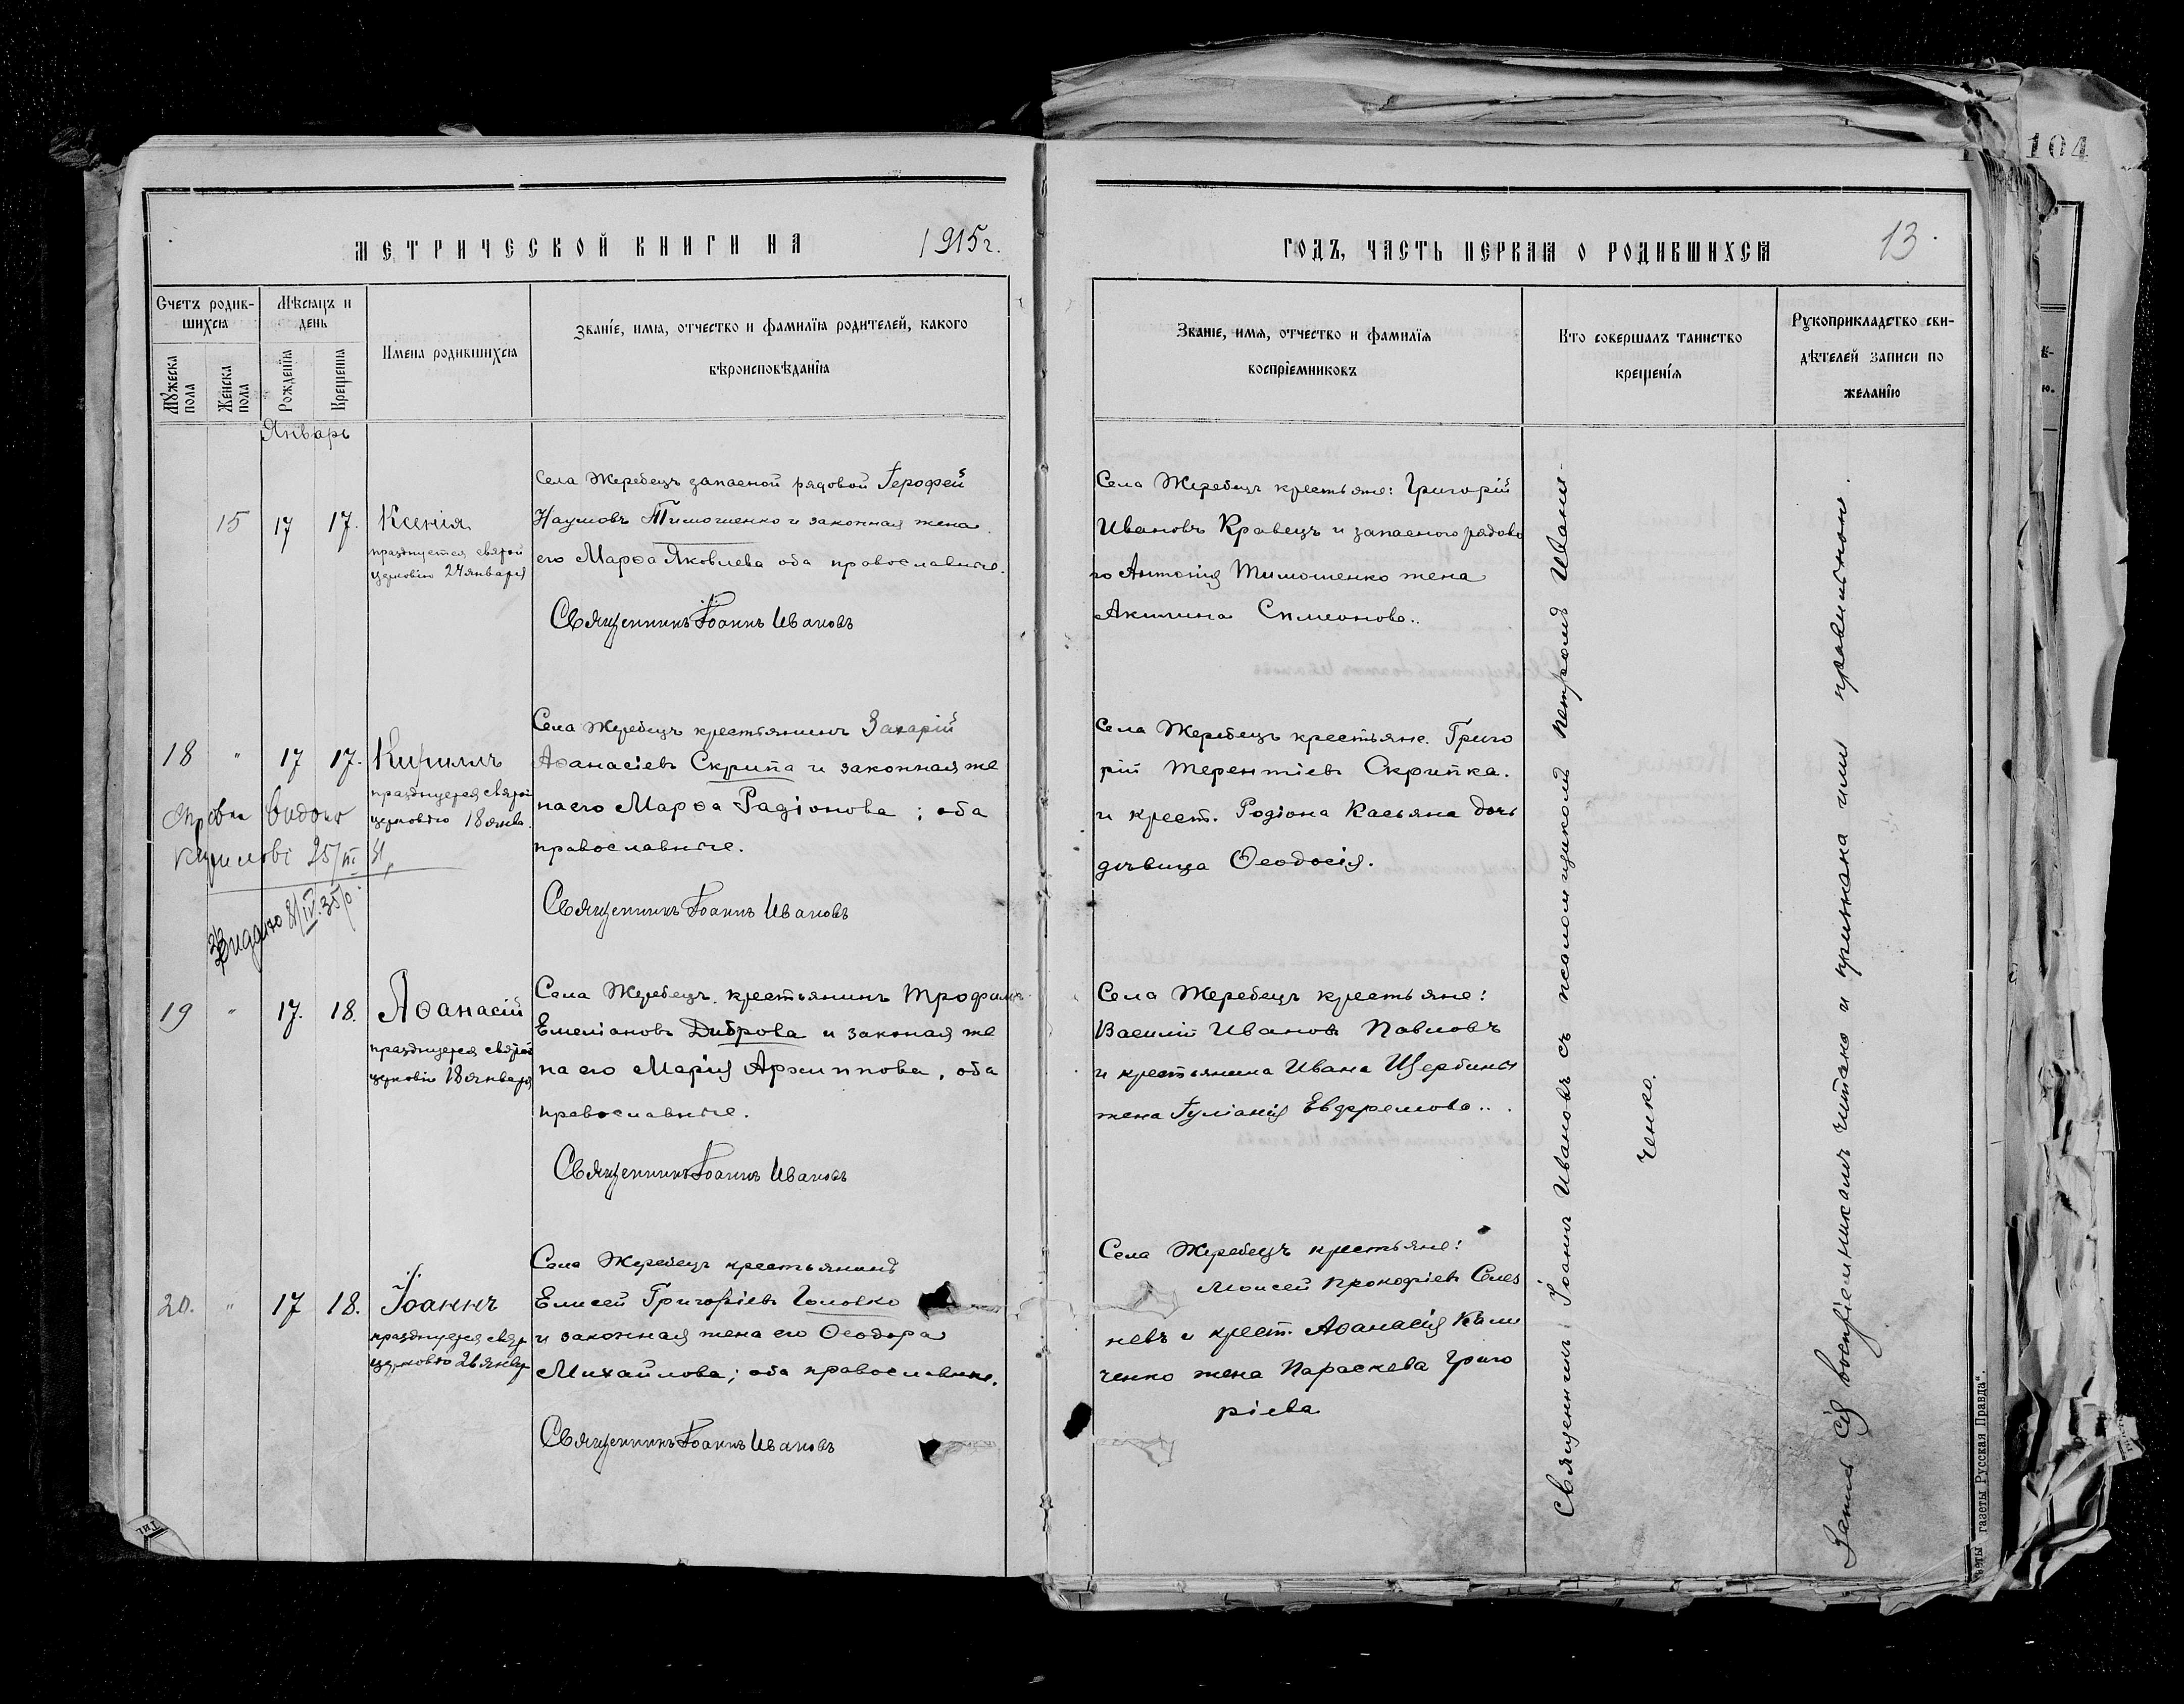 104
МЕТРИЧЕСКОЙ КНИГИ НА 1915 г.
Счетъ родив-
шихся
Мѣсяцъ и
день
Мужеска
пола
Женска
пола
Рожденія
Крещенія
Имена родившихся
Званіе, имя, отчество и фамилія родителей, какого
вѣроисповѣданія
Январь
15 17 17. Ксенія
празднуется святой
церковію 24 января
Села Жеребецъ запасной рядовой Іерофей
Наумовъ Тимошенко и законная жена
его Марѳа Яковлева оба православные.
Священникъ Іоаннъ Ивановъ
18 " 17 17. Кирилъ
празднуется святой
церковію 18 янв.
Села Жеребецъ крестьянинъ Захарій
Аѳанасіевъ Скрипа и законная же
на его Марѳа Радіонова ; оба
православные.
Священникъ Іоаннъ Ивановъ
Видано
19 " 17. 18. Аѳанасій
празднуется святой
церковію 18 января
Села Жеребецъ крестьянинъ Трофимъ
Емеліановъ Диброва и законая же
на его Марія Архиппова, оба
православные.
Священникъ Іоаннъ Ивановъ
20. " 17 18. Іоаннъ
празднуется свят
церковію 26 янвр
Села Жеребецъ крестьянинъ
Елисей Григоріевъ Головко
и законная жена его Ѳеодора
Михайлова; оба православные.
Священникъ Іоаннъ Ивановъ
ГОДЪ, ЧАСТЬ ПЕРВАЯ О РОДИВШИХСЯ 13.
Званіе, имя, отчество и фамилія
воспріемниковъ
Кто совершалъ таинство
крещенія
Рукоприкладство сви-
дѣтелей записи по
желанію
Села Жеребецъ крестьяне: Григорій
Ивановъ Кравецъ и запасного рядово
го Антонія Тимошенко жена
Акилина Симеонова..
Села Жеребецъ крестьяне. Григо
рій Терентіевъ Скрипка.
и крест. Родіона Касьяна дочь
дѣвица Ѳеодосія.
Села Жеребецъ крестьяне:
Василій Ивановъ Павловъ
и крестьянина Ивана Щербины
жена Іуліанія Евфремова..
Села Жеребецъ крестьяне:
Моисей Прокофіевъ Селез
невъ и крест. Аѳанасія Кали
ченко жена Параскева Григо
ріева
Священникъ Іоаннъ Ивановъ съ псаломщикомъ Петромъ Иване-
ченко.
Запись сія воспріемникамъ читана и признана ими правильною.
газеты Русская Правда".